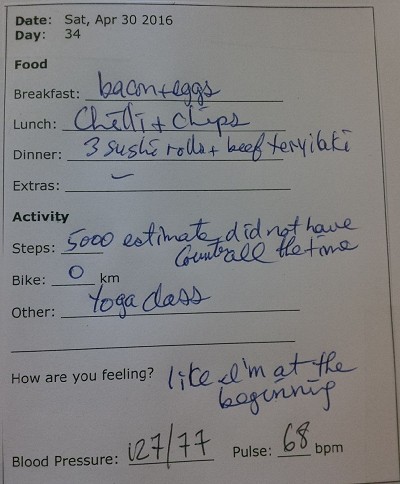 Date: Sat, Apr 30 2016
Day: 34
Food
Breakfast: bacon+eggs
Lunch: Chilli + chips
Dinner: 3 sushi rolls + beef teryilaki
Extras: –
Activity
Steps: 5000 estimate, did not have
counter all the time
Bike: 0 km
Other: Yoga class
How are you feeling? like I'm at the
beginning
Blood Pressure: 127/77 Pulse: 68 bpm